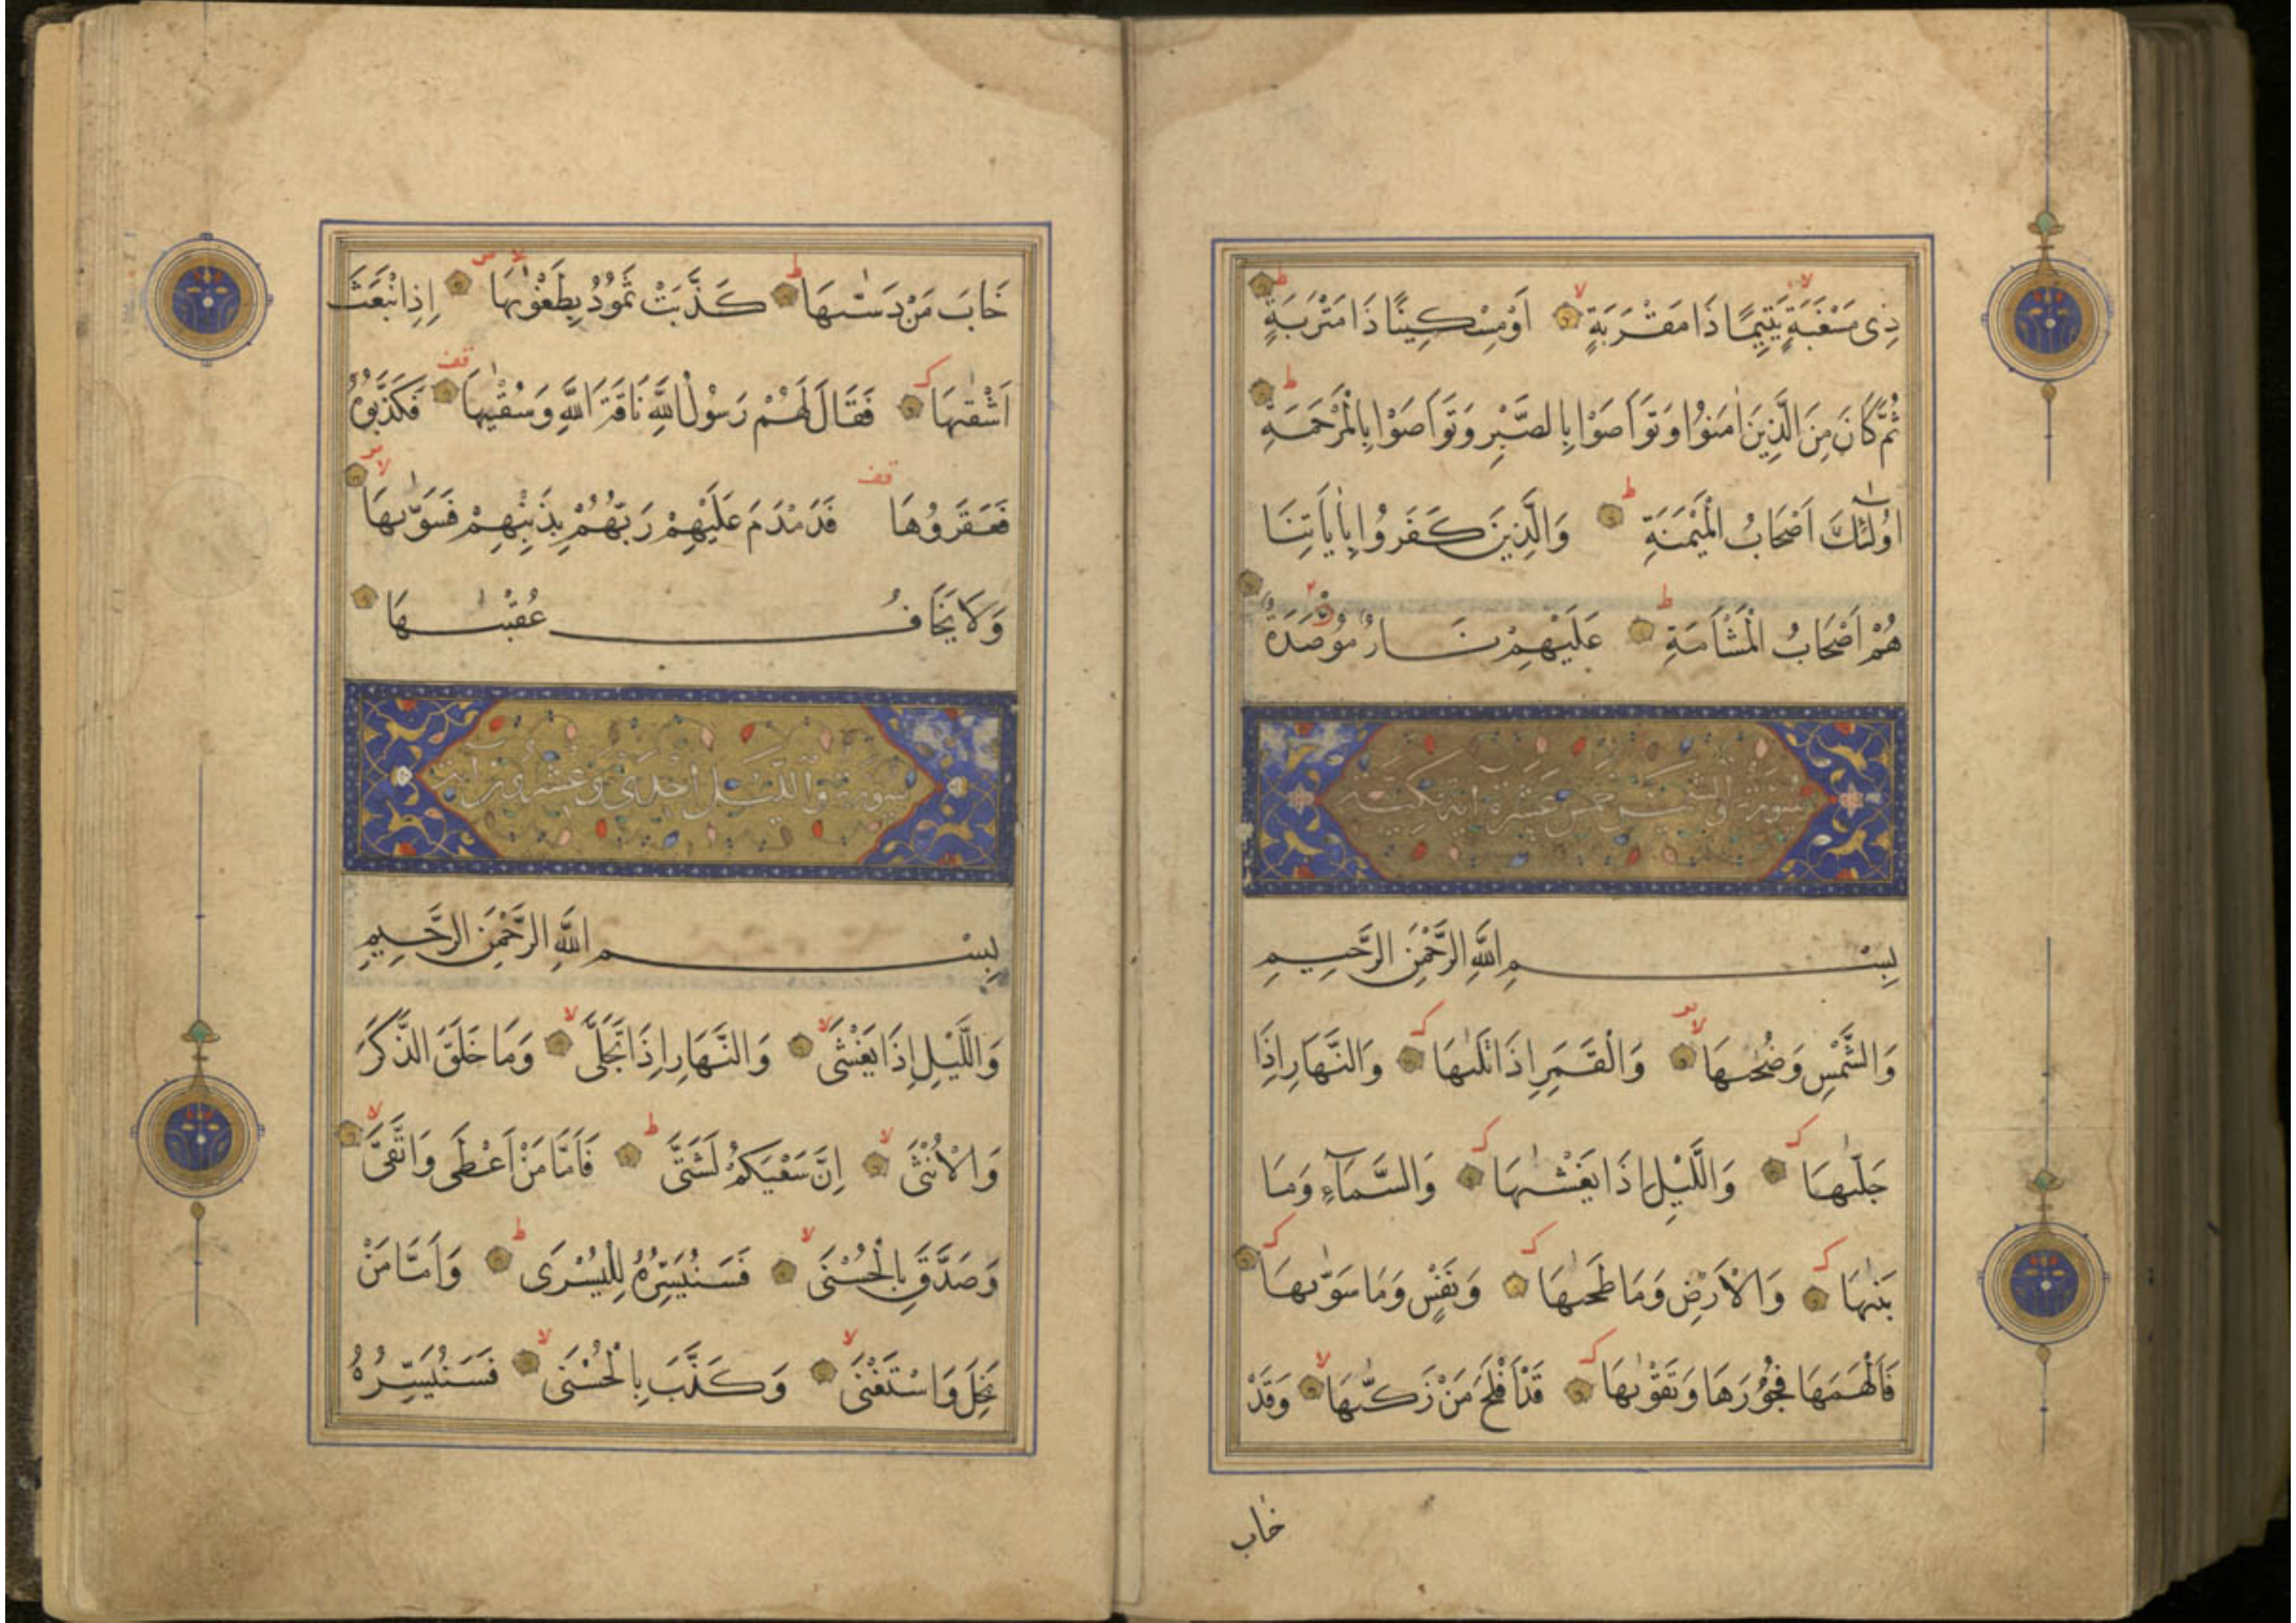 ذِى مَسْغَبَةٍ يَتِيمًا ذَا مَقْرَبَةٍ اَوْ مِسْكِينًا ذَا مَتْرَبَةٍ
ثُمَّ كَانَ مِنَ الَّذِينَ اٰمَنُوا وَتَوَاصَوْا بِالصَّبْرِ وَتَوَاصَوْا بِالْمَرْحَمَةِ
اُولٰئِكَ اَصْحَابُ الْمَيْمَنَةِ وَالَّذِينَ كَفَرُوا بِاٰيَاتِنَا
هُمْ اَصْحَابُ الْمَشْاَمَةِ عَلَيْهِمْ نَارٌ مُوْصَدَةٌ
سورة والشمس خمس عشرة اية مكية
بِسْمِ اللَّهِ الرَّحْمٰنِ الرَّحِيمِ
وَالشَّمْسِ وَضُحٰىهَا وَالْقَمَرِ اِذَا تَلٰىهَا وَالنَّهَارِ اِذَا
جَلّٰىهَا وَالَّيْلِ اِذَا يَغْشٰىهَا وَالسَّمَآءِ وَمَا
بَنٰىهَا وَالْاَرْضِ وَمَا طَحٰىهَا وَنَفْسٍ وَمَا سَوّٰىهَا
فَاَلْهَمَهَا فُجُوْرَهَا وَتَقْوٰىهَا قَدْ اَفْلَحَ مَنْ زَكّٰىهَا وَقَدْ
خاب
خَابَ مَنْ دَسّٰىهَا كَذَّبَتْ ثَمُوْدُ بِطَغْوٰىهَا اِذِ انْبَعَثَ
اَشْقٰىهَا فَقَالَ لَهُمْ رَسُوْلُ اللَّهِ نَاقَةَ اللَّهِ وَسُقْيٰهَا فَكَذَّبُوْهُ
فَعَقَرُوْهَا فَدَمْدَمَ عَلَيْهِمْ رَبُّهُمْ بِذَنْبِهِمْ فَسَوّٰىهَا
وَلَا يَخَافُ عُقْبٰىهَا
سورة والليل احدى وعشرون اية
بِسْمِ اللَّهِ الرَّحْمٰنِ الرَّحِيمِ
وَالَّيْلِ اِذَا يَغْشٰى وَالنَّهَارِ اِذَا تَجَلّٰى وَمَا خَلَقَ الذَّكَرَ
وَالْاُنْثٰى اِنَّ سَعْيَكُمْ لَشَتّٰى فَاَمَّا مَنْ اَعْطٰى وَاتَّقٰى
وَصَدَّقَ بِالْحُسْنٰى فَسَنُيَسِّرُهُ لِلْيُسْرٰى وَاَمَّا مَنْ
بَخِلَ وَاسْتَغْنٰى وَكَذَّبَ بِالْحُسْنٰى فَسَنُيَسِّرُهُ